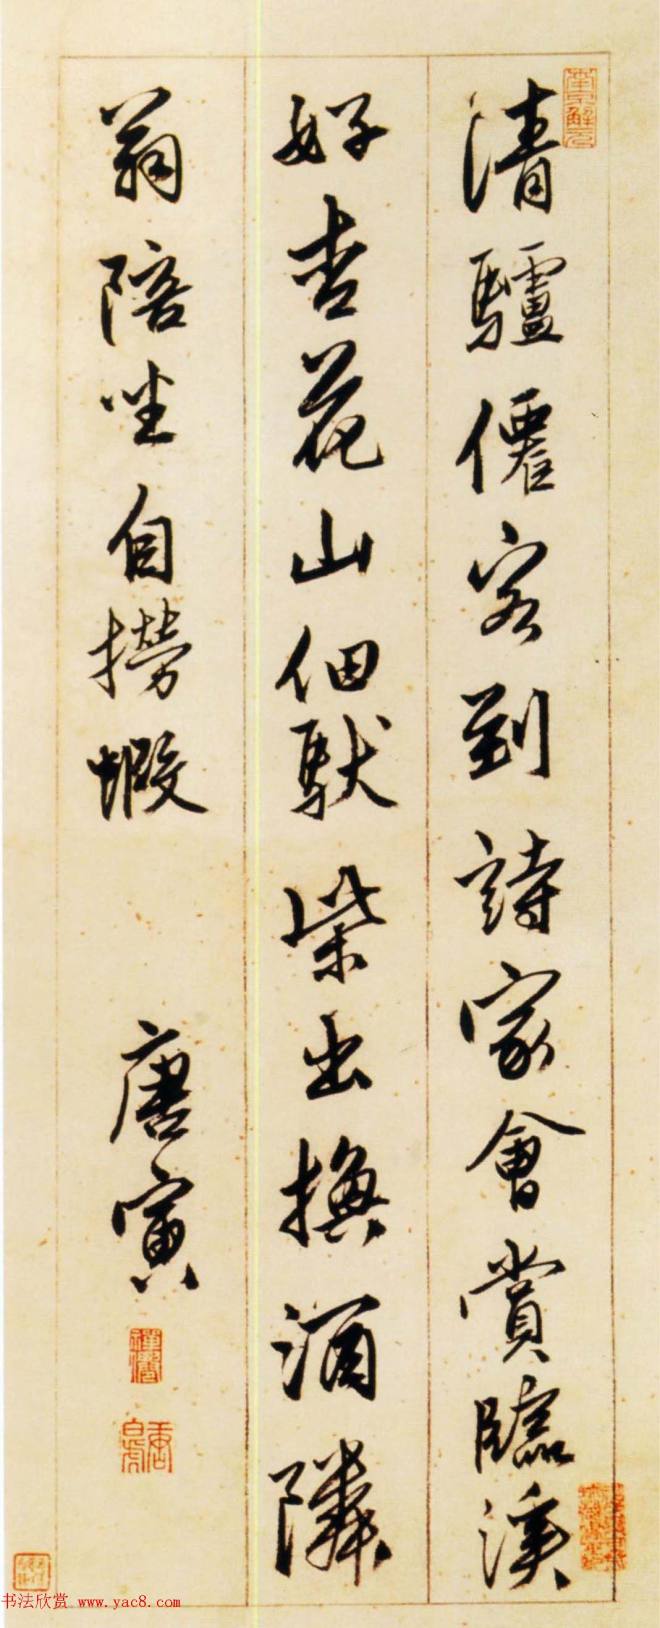 南京解元
清驢僊客到詩家會賞臨溪
好杏花山佃馱柴出換酒隣
翁陪坐自撈蝦
唐寅
唐白虎
书法欣赏 www.yac8.com